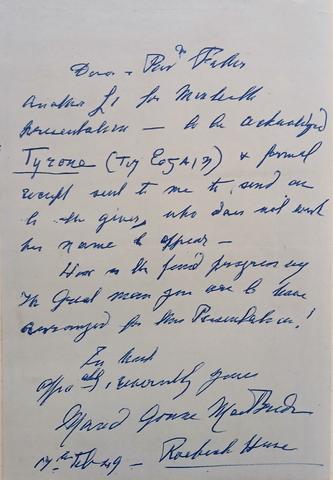 Dear & Revd Father
Another £1 for
Presentation — to be acknowledged
Tyrone (Tír Eoġain) & formal
receipt sent to me to send on
to the giver, who does not wish
her name to appear —
How is the fund progressing
The Great man you are to have
arranged for this Presentation!
In haste
affectly, reverently yours
Maud Gonne MacBride
Feb 49 — Roebuck House